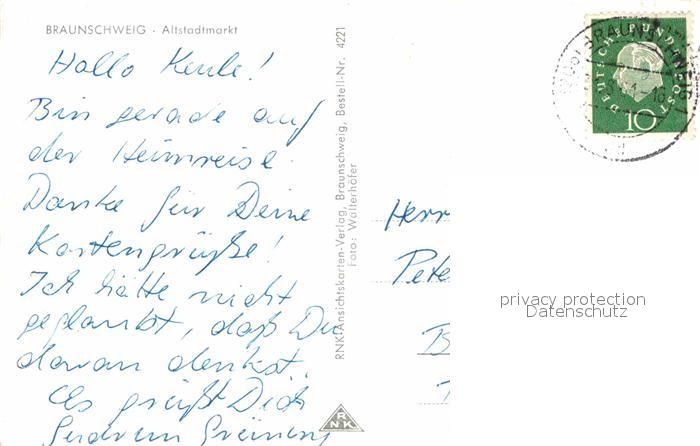 BRAUNSCHWEIG · Altstadtmarkt
Hallo Keule!
Bin gerade auf
der Heimreise.
Danke für Deine
Kartengrüße!
Ich hätte nicht
geglaubt, daß Du
daran denkst.
Es grüßt Dich
RNK-Ansichtskarten-Verlag, Braunschweig, Bestell-Nr. 4221
Foto: Walterhöfer
RNK
DEUTSCHE BUNDESPOST
10
Herr
Pete
B
privacy protection
Datenschutz